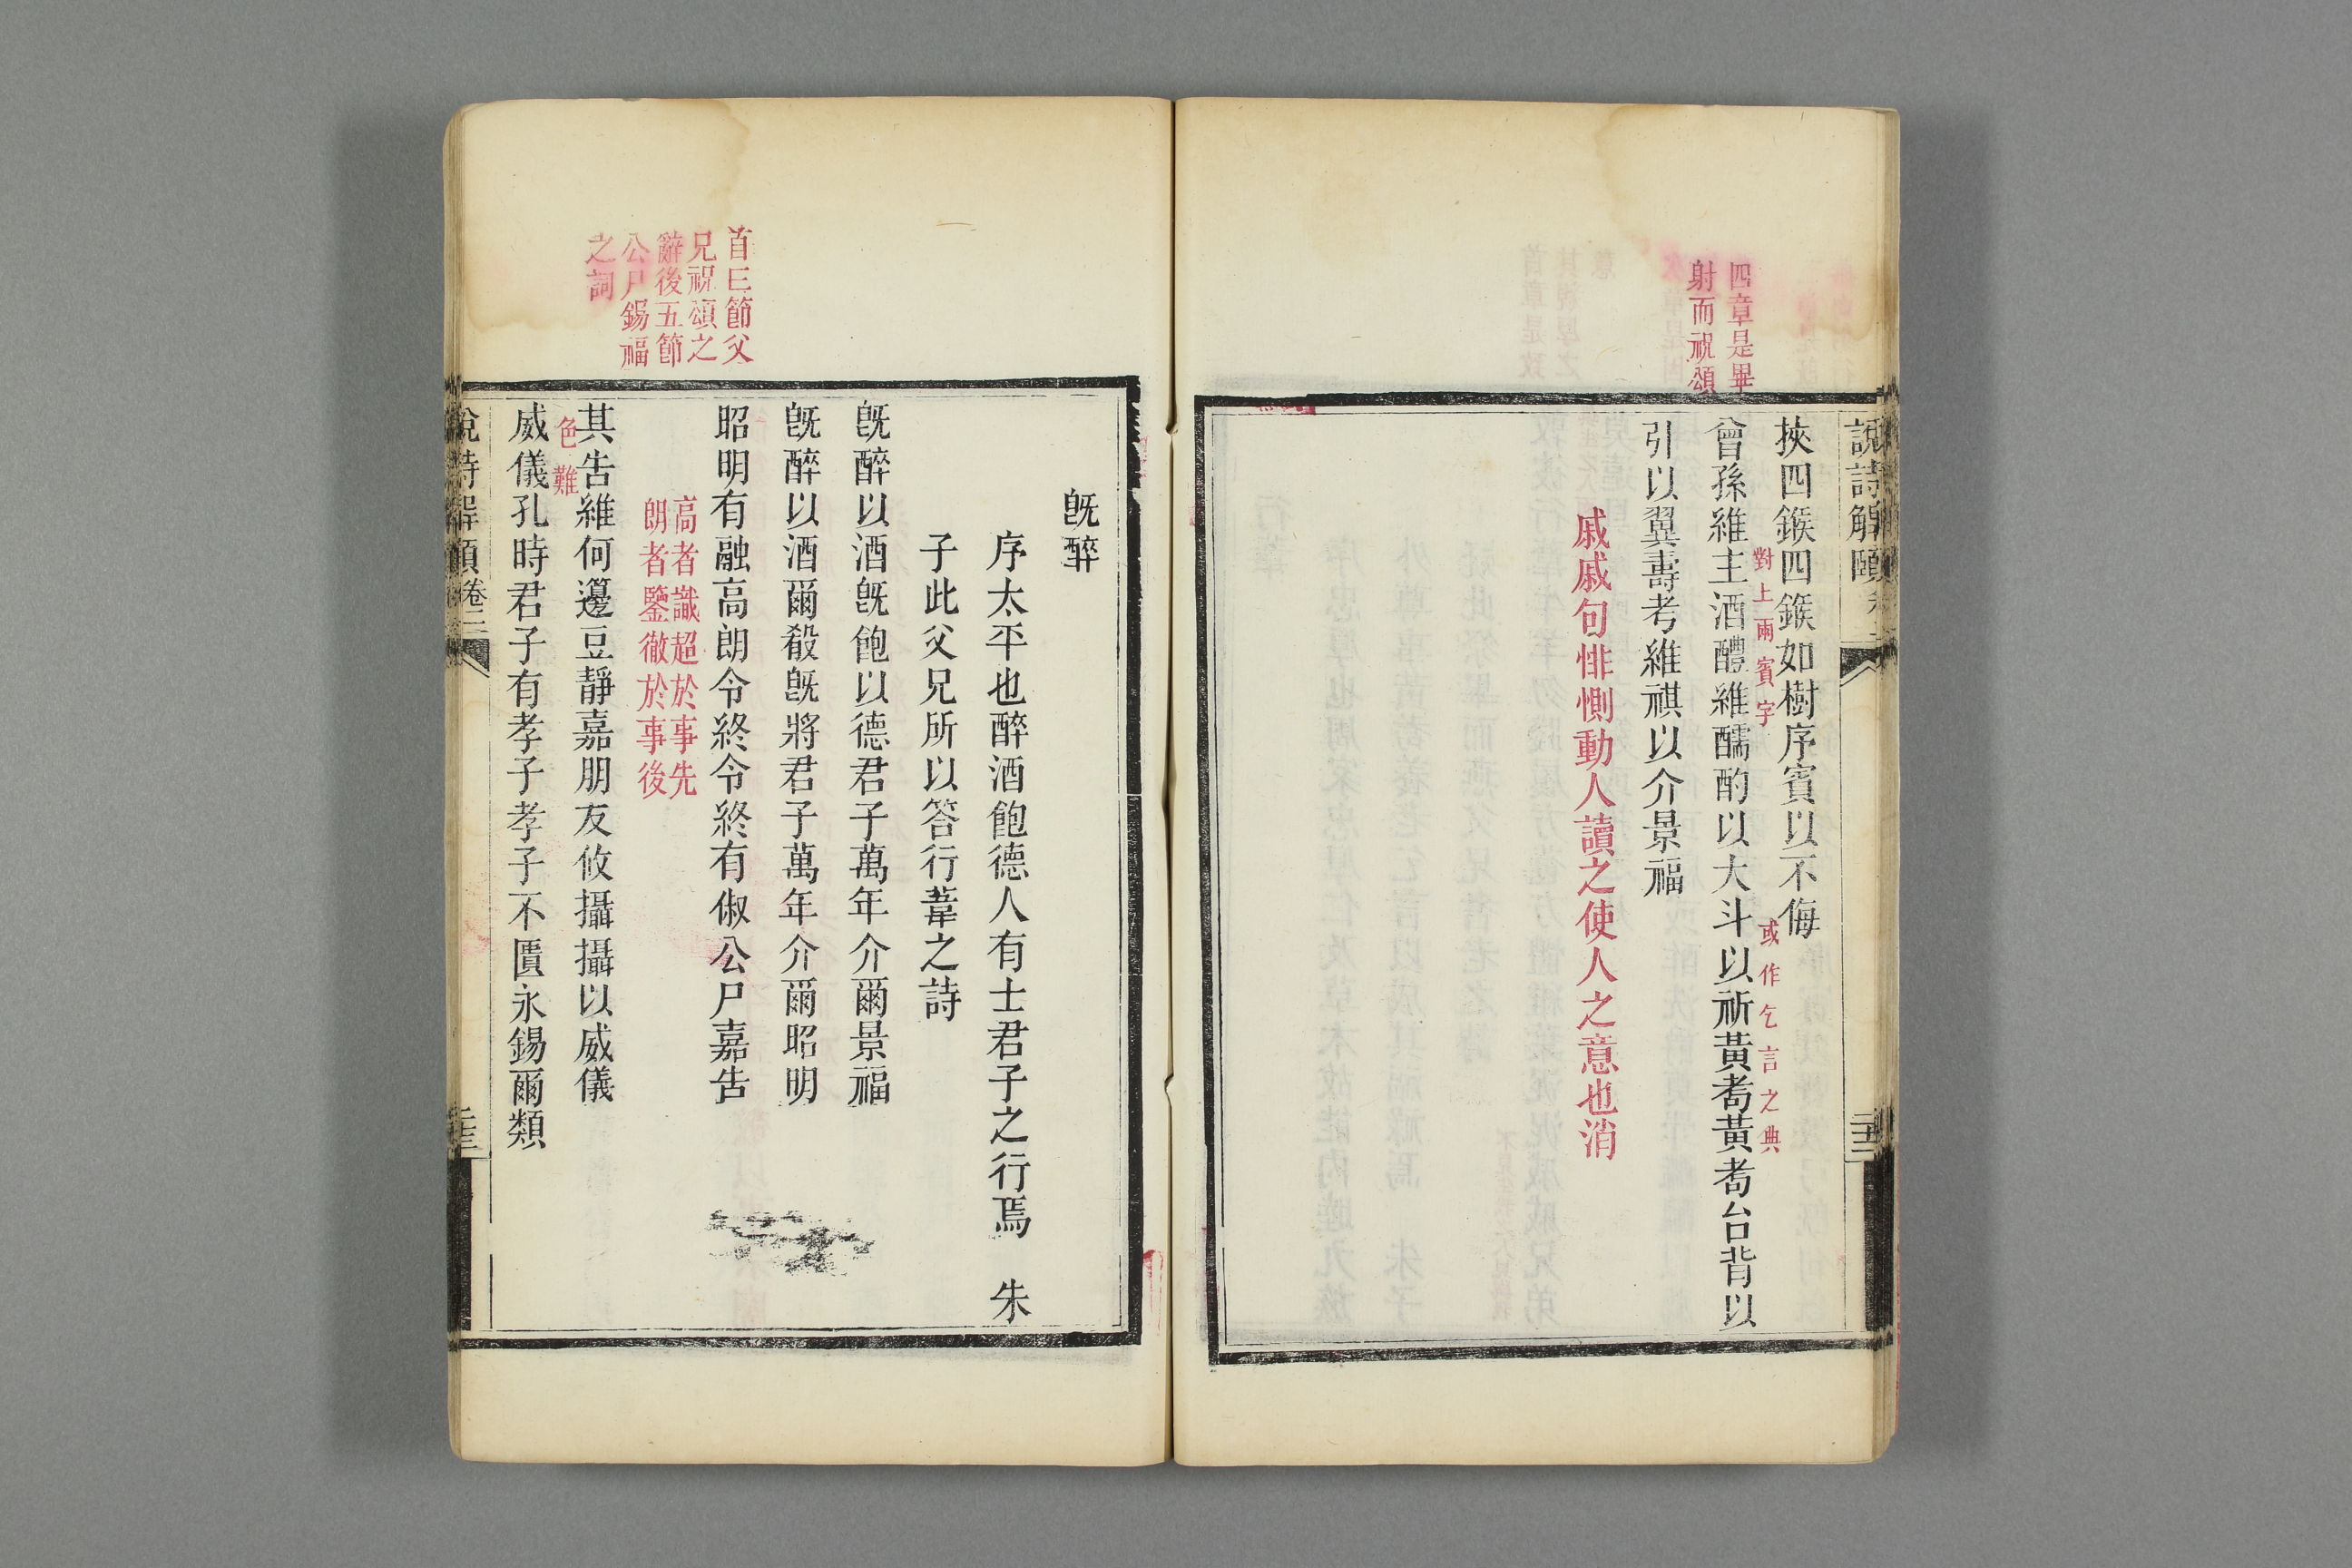 說詩解頤
四章是畢
射而祝頌
挾四鍭四鍭如樹序賓以不侮
對上兩賓字
或作乞言之典
曾孫維主酒醴維醹酌以大斗以祈黃耇黃耇台背以
引以翼壽考維祺以介景福
戚戚句悱惻動人讀之使人之意也消
首三節父
兄祝頌之
辭後五節
公尸錫福
之詞
旣醉
序太平也醉酒飽德人有士君子之行焉　朱
子此父兄所以答行葦之詩
旣醉以酒旣飽以德君子萬年介爾景福
旣醉以酒爾殽旣將君子萬年介爾昭明
昭明有融高朗令終令終有俶公尸嘉告
高者識超於事先
朗者鑒徹於事後
其告維何籩豆靜嘉朋友攸攝攝以威儀
色難
威儀孔時君子有孝子孝子不匱永錫爾類
說詩解頤 卷二